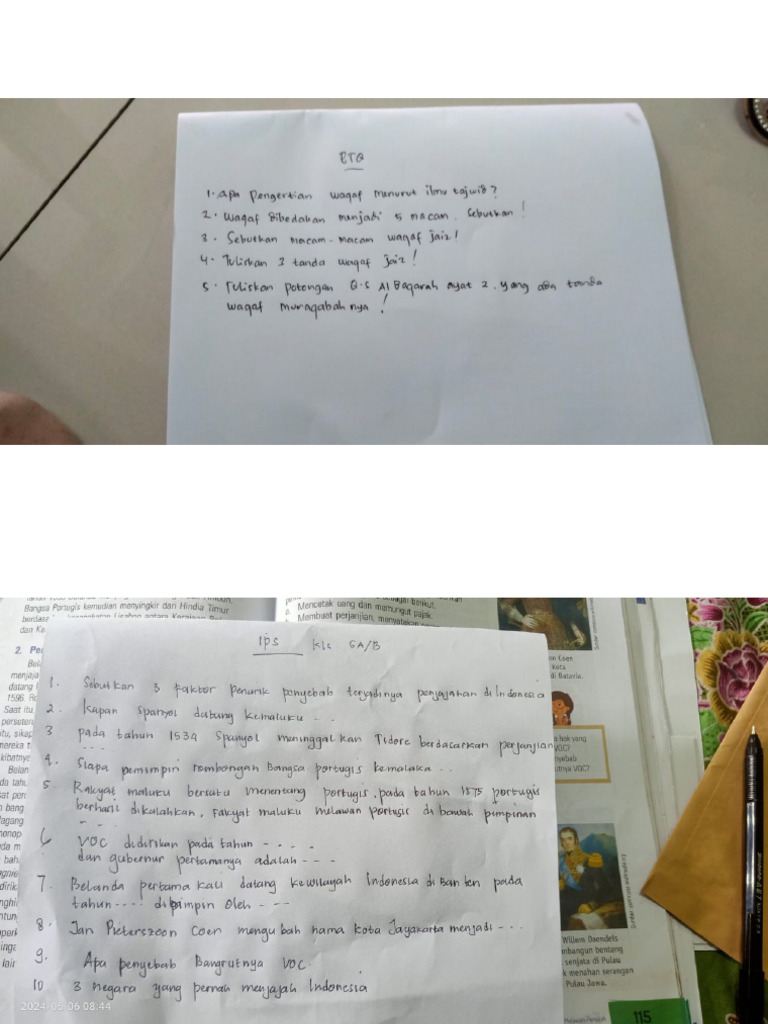 BTQ
1. Apa Pengertian waqaf menurut ilmu tajwid?
2. Waqaf dibedakan menjadi 5 macam. Sebutkan!
3. Sebutkan macam-macam waqaf jaiz!
4. Tuliskan 3 tanda waqaf jaiz!
5. Tuliskan potongan Q.S Al Baqarah ayat 2. yang ada tanda
waqaf muraqabah nya!
Bangsa Portugis kemudian menyingkir dari Hindia Timur
Mencetak uang dan memungut pajak.
Membuat perjanjian, menyatakan
IPS Kls 5A/B
1. Sibutkan 3 faktor penarik penyebab terjadinya penjajahan di Indonesia
2. Kapan Spanyol datang kemaluku - -
3 pada tahun 1534 Spanyol meninggalkan Tidore berdasarkan perjanjian
- - - -
4. Siapa pemimpin rombongan Bangsa portugis kemalaka.
5 Rakyat maluku bersatu menentang portugis, pada tahun 1575 portugis
berhasil dikalahkan, rakyat maluku melawan portugis di bawah pimpinan
- - -
6 VOC didirikan pada tahun - - - -
dan gubernur pertamanya adalah - - -
7. Belanda pertama kali datang kewilayah Indonesia di Banten pada
tahun - - - - dipimpin oleh - - -
8. Jan Pieterszoon Coen mengubah nama kota Jayakarta menjadi - - -
9. Apa penyebab Bangrutnya VOC.
10 3 negara yang pernah menjajah Indonesia
2024-05-06 08:44
Willem Daendels
mbangun benteng
senjata di Pulau
k menahan serangan
Pulau Jawa.
115